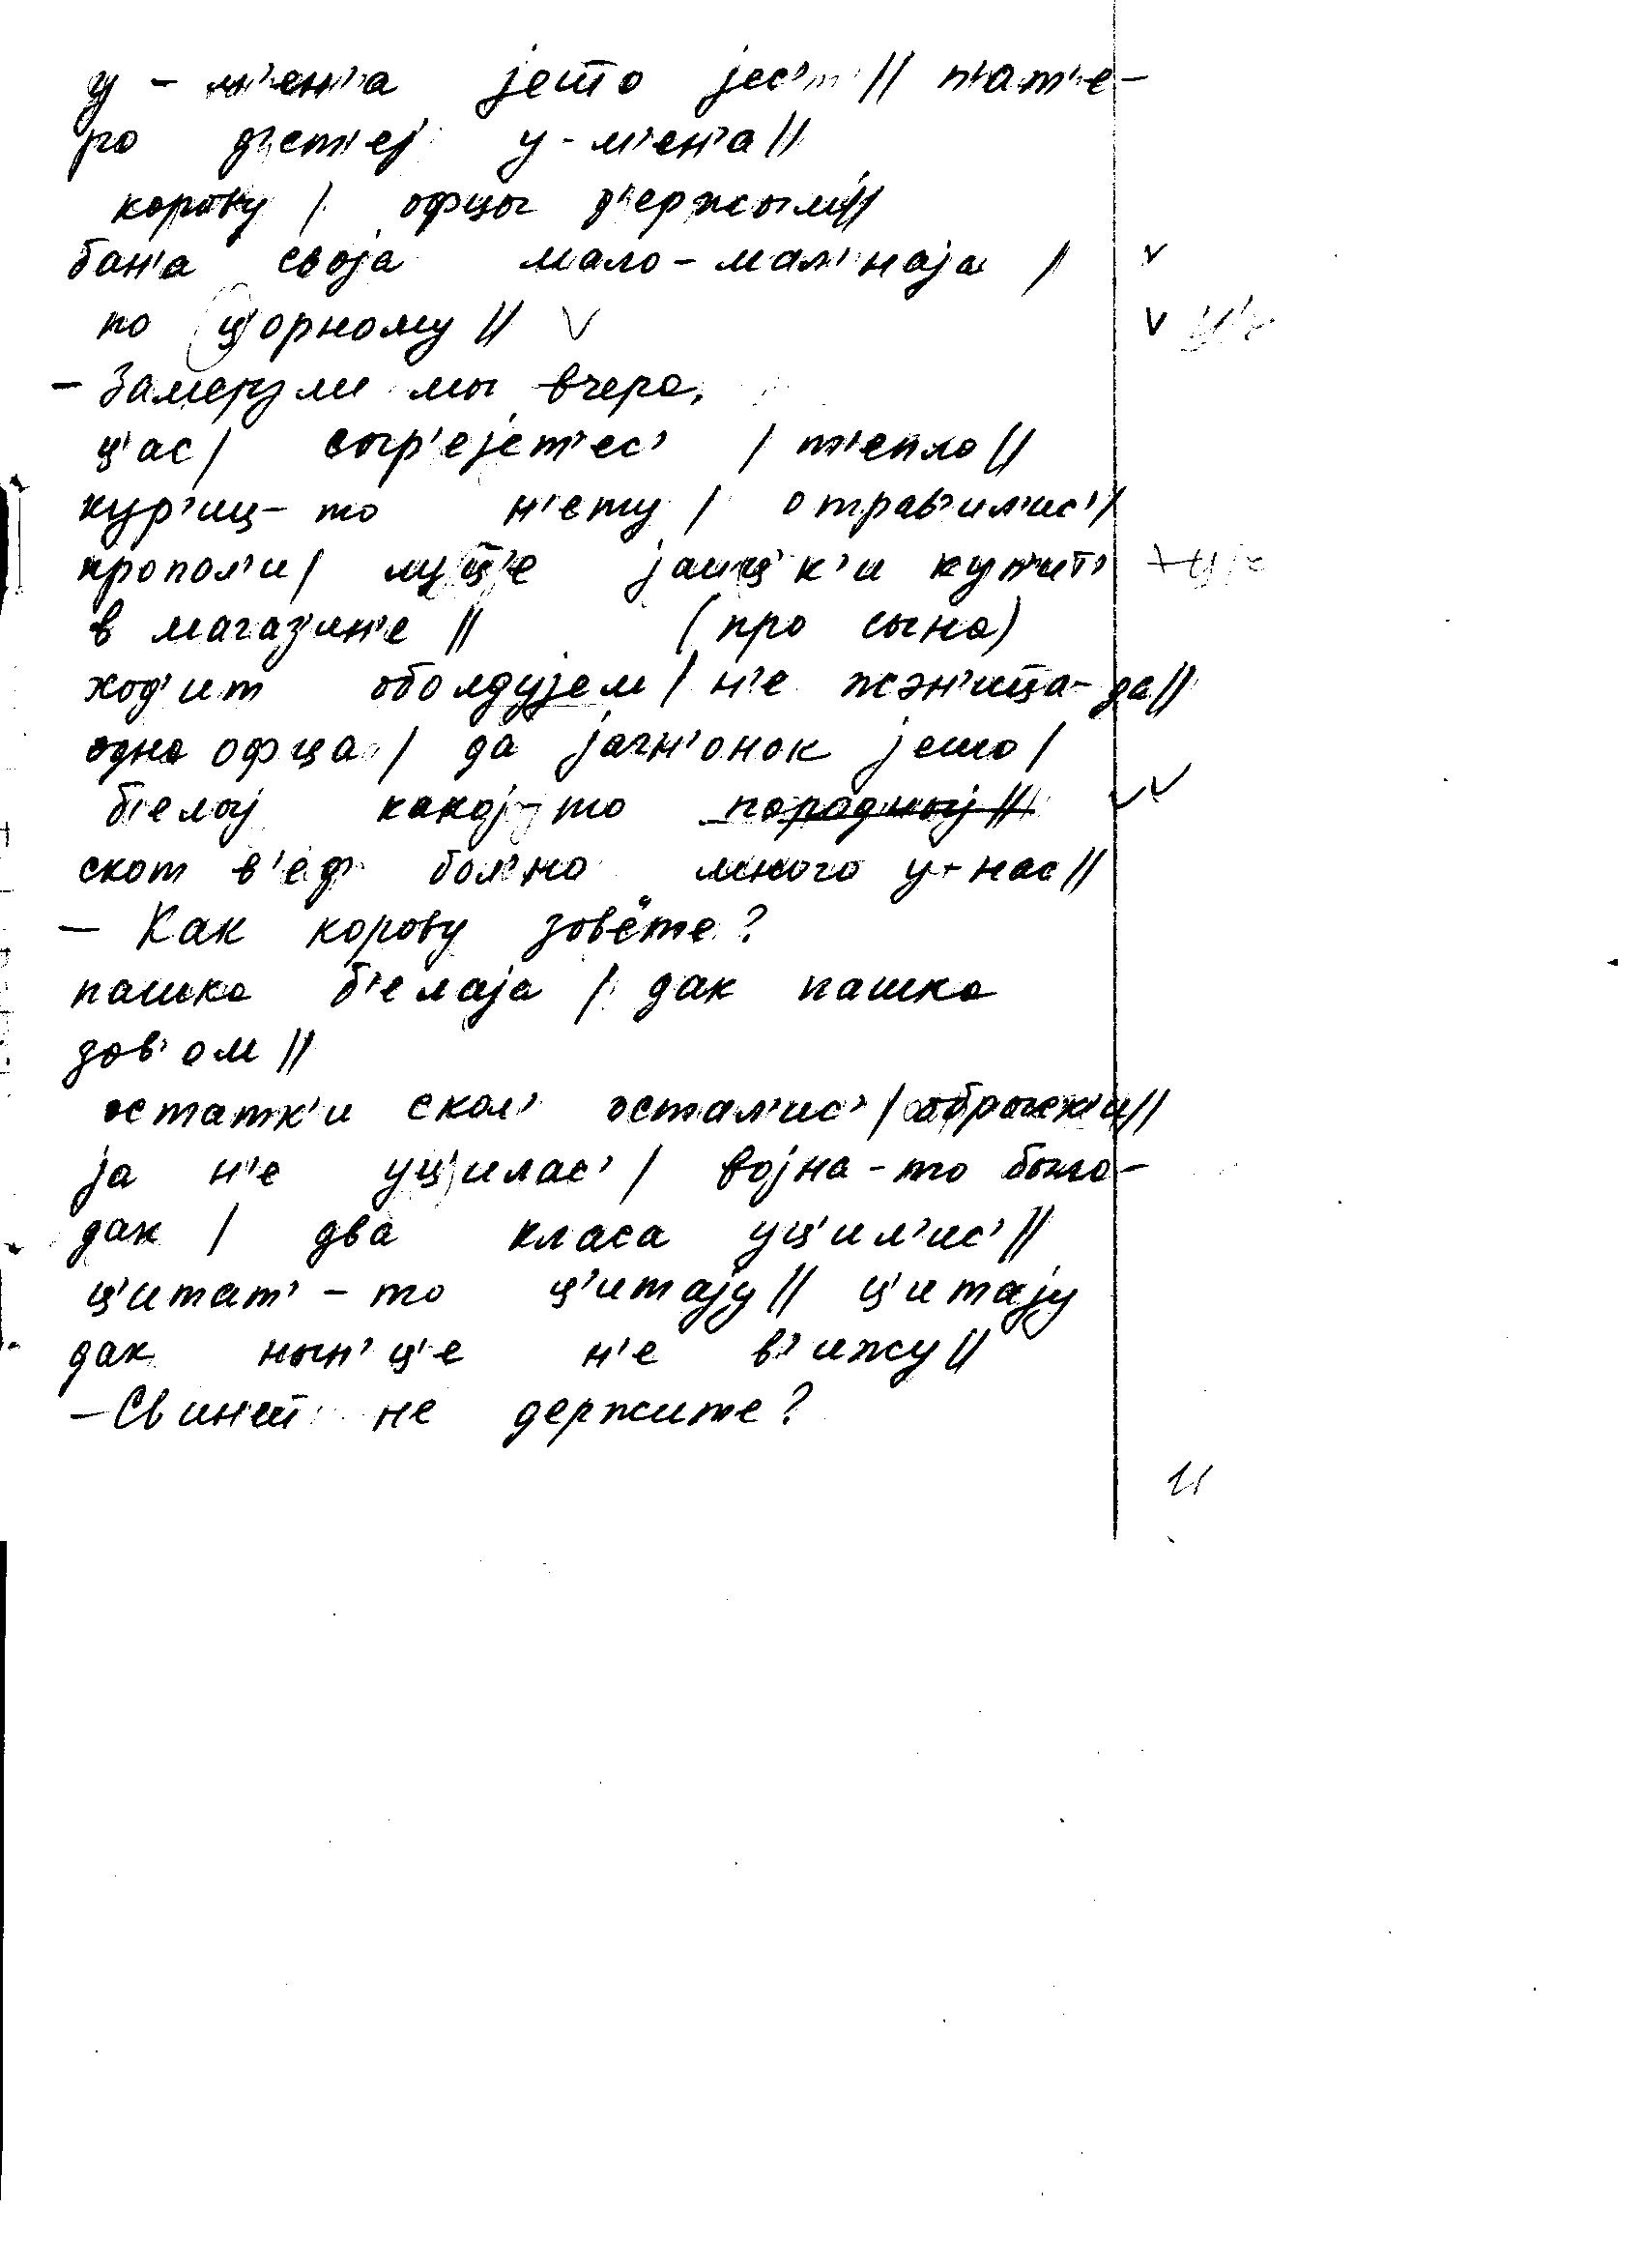 у - м'ен'а jешо jес'т' || п'ат'е-
ро д'ет'еj у - м'ен'а ||
корову | офцы д'ержым ||
бан'а своjа мало - мал'наjа |
по ц'орному ||
- Замерзли мы вчера.
ц'ас | сыгр'еjет'ес' | т'епло ||
кур'иц - то н'ету | отрав'ил'ис' |
пропол'и | луц'е jаиц'к'и куп'ит'
в магаз'ин'е || (про сына)
ход'ит оболдуjем | н'е жэн'ица - да ||
одна офца | да jагн'онок jешо |
б'елоj какоj - то породноj ||
скот в'еф бол'но много у - нас ||
- Как корову зовёте?
пашка б'елаjа | дак пашка
зов'ом ||
остатк'и скол' остал'ис' |
jа н'е уц'илас' | воjна - то была -
дак | два класа уц'ил'ис' ||
ц'итат' - то ц'итаjу || ц'итаjу
дак нын'ц'е н'е в'ижу ||
- Свиней не держите?